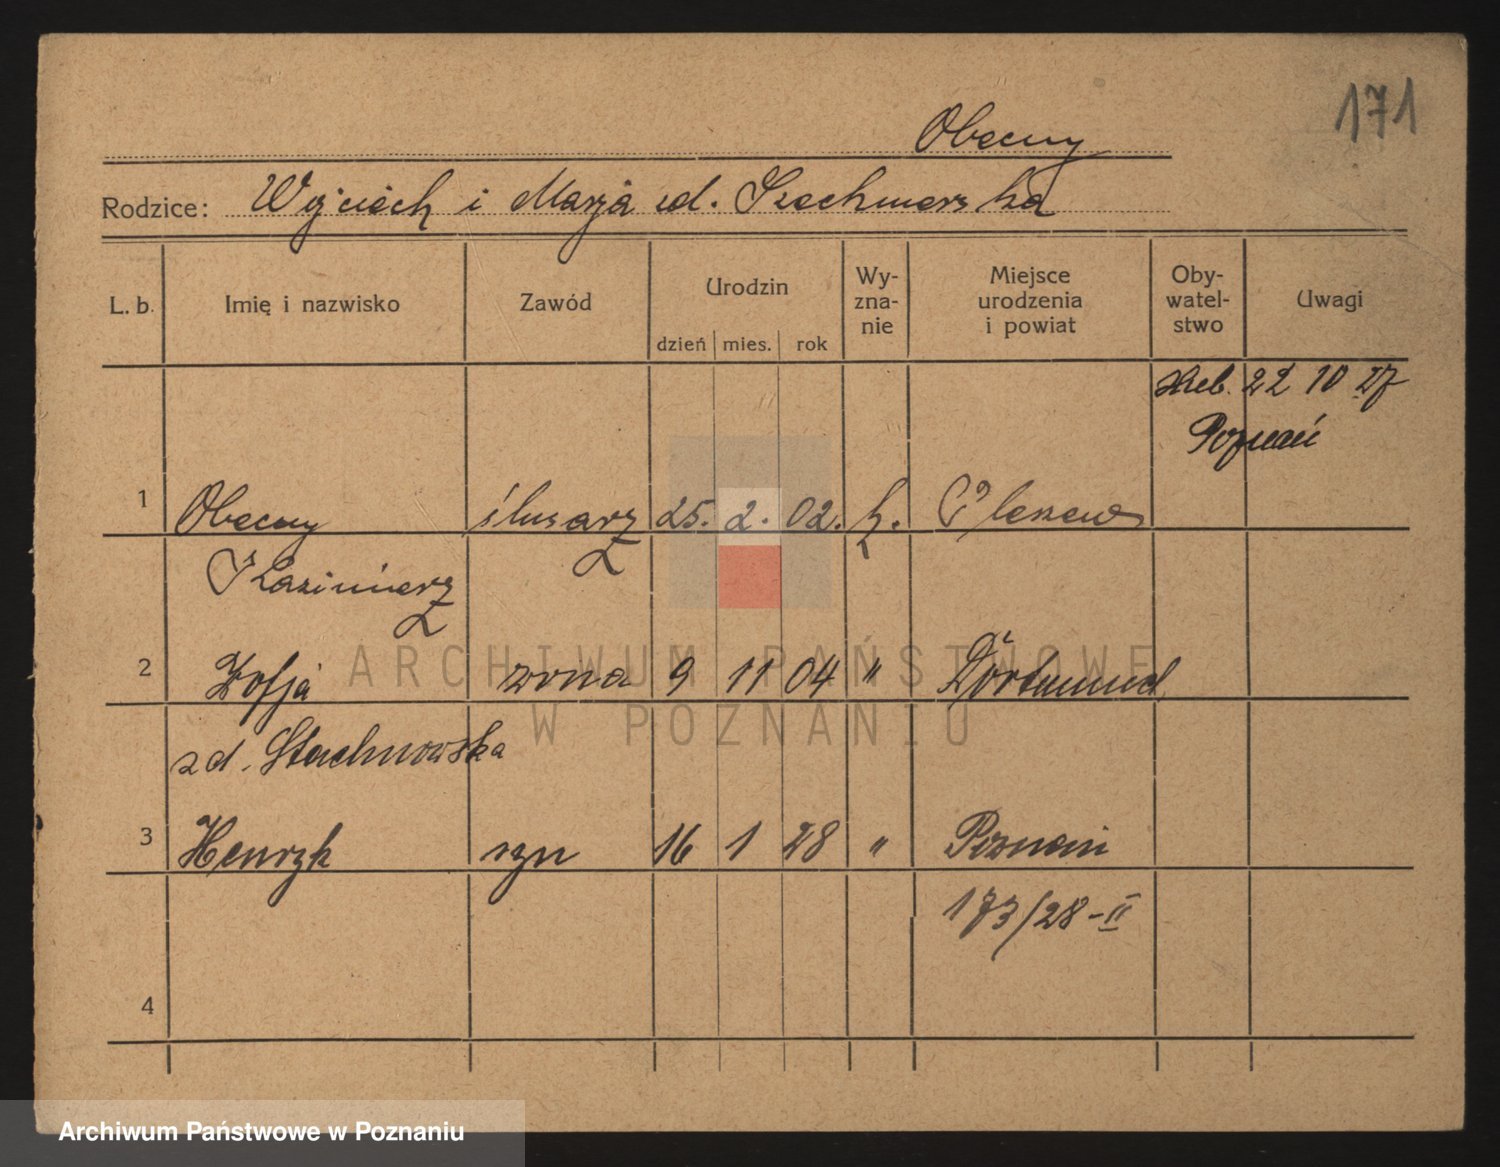 171
Obecny
Rodzice: Wojciech i Marja zd.
L. b. Imię i nazwisko Zawód Urodzin dzień mies. rok Wy- zna- nie Miejsce urodzenia i powiat Oby- watel- stwo Uwagi
22 10 27
Poznań
1 Obecny ślusarz 25. 2. 02. k. Pleszew
Kazimierz
2 Zofja żona 9 11 04 " Dortmund
zd. Stachnowska
3 Henryk syn 16 1 28 " Poznań
173/28-II
4
ARCHIWUM PAŃSTWOWE
W POZNANIU
Archiwum Państwowe w Poznaniu